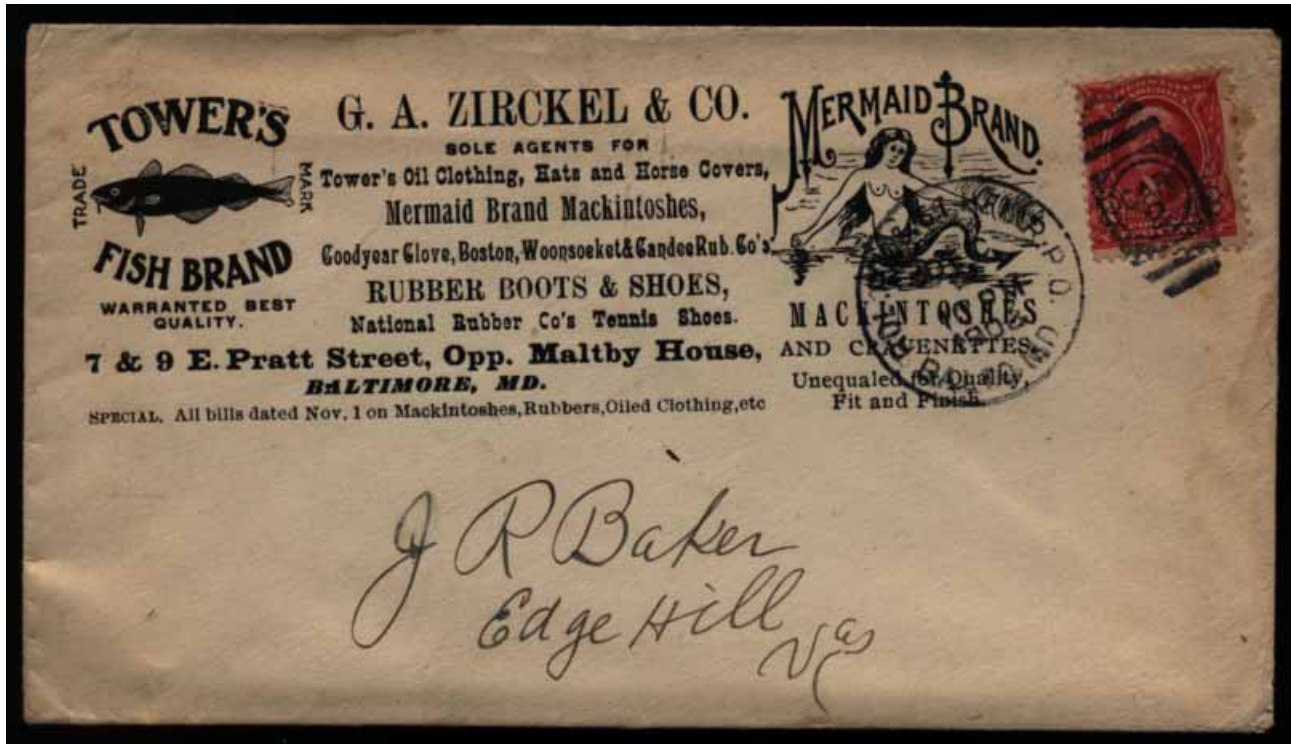 TOWER'S
TRADE MARK
FISH BRAND
WARRANTED BEST
QUALITY.
G. A. ZIRCKEL & CO.
SOLE AGENTS FOR
Tower's Oil Clothing, Hats and Horse Covers,
Mermaid Brand Mackintoshes,
Goodyear Glove, Boston, Woonsocket & Candee Rub. Co's
RUBBER BOOTS & SHOES,
National Rubber Co's Tennis Shoes.
7 & 9 E. Pratt Street, Opp. Maltby House,
BALTIMORE, MD.
SPECIAL. All bills dated Nov. 1 on Mackintoshes, Rubbers, Oiled Clothing, etc
MERMAID BRAND.
MACKINTOSHES
AND CRAVENETTES,
Unequaled for Quality,
Fit and Finish.
J R Baker
Edge Hill
Va